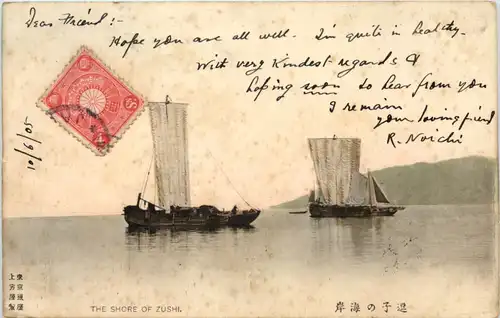 Dear Friend :-
Hope you are all well. I'm quite in healthy.
With very kindest regards &
hoping soon to hear from you
I remain
your loving friend
R. Noichi
10/6/05
THE SHORE OF ZUSHI.
岸海の子逗
東京銀座
上方屋製